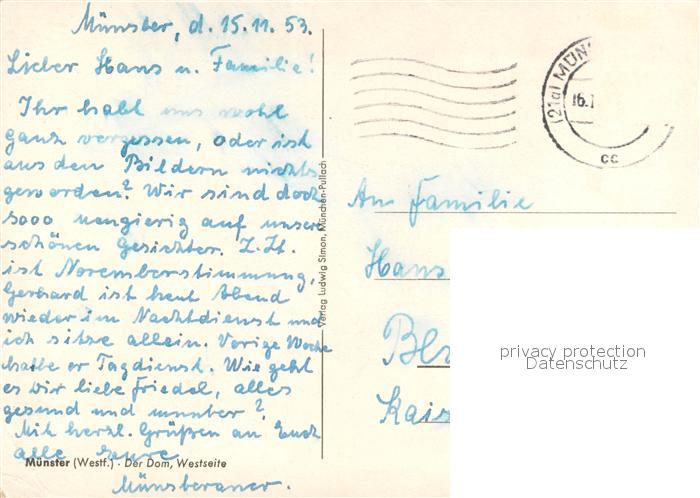 Münster, d. 15.11.53.
Lieber Hans u. Familie!
Ihr habt uns wohl
ganz vergessen, oder ist
aus den Bildern nichts
geworden? Wir sind doch
sooo neugierig auf unsere
schönen Gesichter. Z.Zt.
ist Novemberstimmung,
Gerhard ist heut Abend
wieder im Nachtdienst und
ich sitze allein. Vorige Woche
hatte er Tagdienst. Wie geht
es Dir liebe Friedel, alles
gesund und munter?
Mit herzl. Grüßen an Euch
alle Eure
Münsteraner.
Münster (Westf.) · Der Dom, Westseite
Verlag Ludwig Simon, München-Pullach
(21a) MÜN
16.1
cc
An Familie
Hans
Kais
privacy protection
Datenschutz